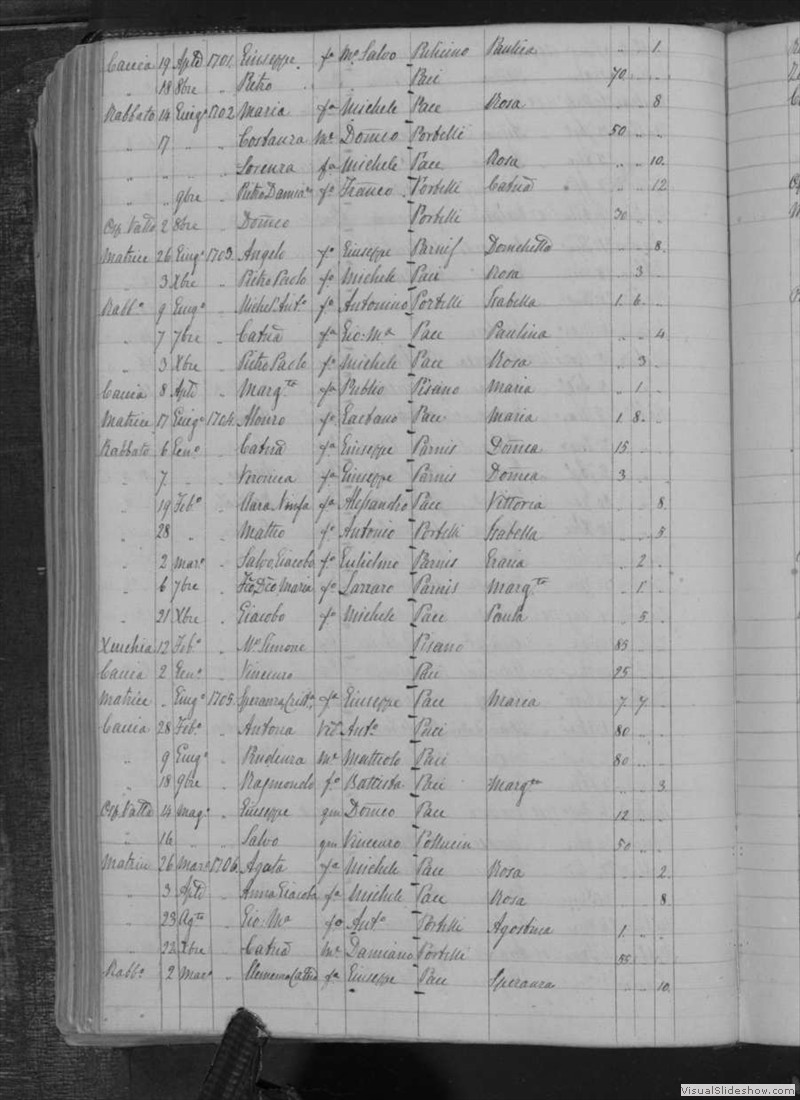 Caccia 19 Aple 1701 Giuseppe fo Mo Salvo Pulicino Paulica .. .. 1.
" 18 8bre " Pietro Paci 70 .. ..
Rabbato 14 Giugo 1702 Maria fa Michele Pace Rosa .. .. 8
" 17 " " Costanza me Domeo Portelli 50 .. ..
" " " " Lorenza fa Michele Pace Rosa .. .. 10.
" " 9bre " fo Franco Portelli Catna .. .. 12
Osp. Vallo 2 8bre " Domeo Portelli 30 .. ..
Matrice 26 Giugo 1703 Angelo fo Giuseppe Parnis .. .. 8.
" 3 Xbre " Pietro Paolo fo Michele Pace Rosa .. 3 ..
Rabbo 9 Giugo " Michel'Anto fo Antonino Portelli Isabella 1. 6. ..
" 7 7bre " Catna fa Gio: Ma Pace Paulina .. .. 4
" 3 Xbre " Pietro Paolo fo Michele Pace Rosa .. 3 ..
Caccia 8 Aple " Margta fa Publio Pisano Maria .. 1 ..
Matrice 17 Giugo 1704 Alonzo fo Gaetano Pace Maria 1 8. ..
Rabbato 6 Geno " Catna fa Giuseppe Parnis Domca 15 .. ..
" 7 " " Veronica fa Giuseppe Parnis Domca 3 .. ..
" 19 Febo " Clara Ninfa fa Alessandro Pace Vittoria .. .. 8.
" 28 " " Matteo fo Antonio Portelli Isabella .. .. 5
" 2 Maro " Salvo, Giacobo fo Guglielmo Parnis Grazia .. 2 ..
" 6 7bre " Maria fo Lazzaro Parnis Margta .. 1. ..
" 21 Xbre " Giacobo fo Michele Pace Paula .. 5 ..
Xeuchia 12 Febo " Mo Simone Pisano 85 .. ..
Caccia 2 Geno " Vincenzo Paci 25 .. ..
Matrice .. Giugo 1705 fa Giuseppe Pace Maria 7 7 ..
Caccia 28 Febo " Antona Anto Paci 80 .. ..
" 9 Giugo " Prudenza me Matteolo Paci 80 .. ..
" 18 9bre " Raymondo fo Battista Paci Margta .. .. 3
Osp. Vallo 14 Mago " Giuseppe qm Domeo Pace 12 .. ..
" 16 " " Salvo qm Vincenzo 50 .. ..
Matrice 26 Maro 1706 Agata fa Michele Pace Rosa .. .. 2.
" 3 Aple " Anna Giacoba fa Michele Pace Rosa .. .. 8
" 23 Agto " Gio: Ma fo Anto Portelli Agostina 1. .. ..
" 22 Xbre " Catna me Damiano Portelli 55 .. ..
Rabbo 2 Maro " Clemenza Catna fa Giuseppe Pace Speranza .. .. 10.
VisualSlideshow.com